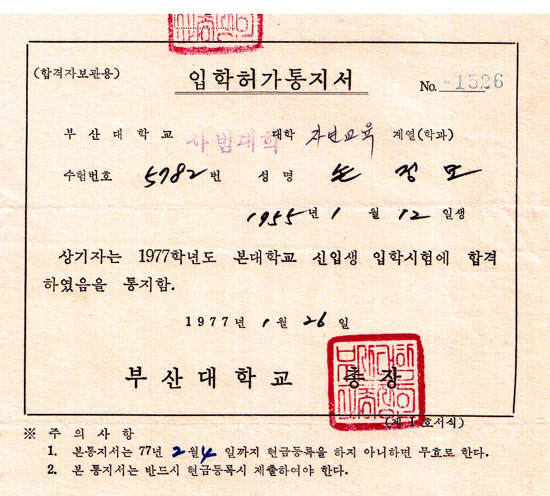 (합격자보관용)
입학허가통지서
No. 1526
부산대학교 사범대학 대학 자연교육 계열(학과)
수험번호 5782 번 성명 손 정 모
1955 년 1 월 12 일생
상기자는 1977학년도 본대학교 신입생 입학시험에 합격
하였음을 통지함.
1977년 1 월 26 일
부산대학교 총장
(제 1 호서식)
※ 주 의 사 항
1. 본통지서는 77년 2 월 4 일까지 현금등록을 하지 아니하면 무효로 한다.
2. 본 통지서는 반드시 현금등록시 제출하여야 한다.